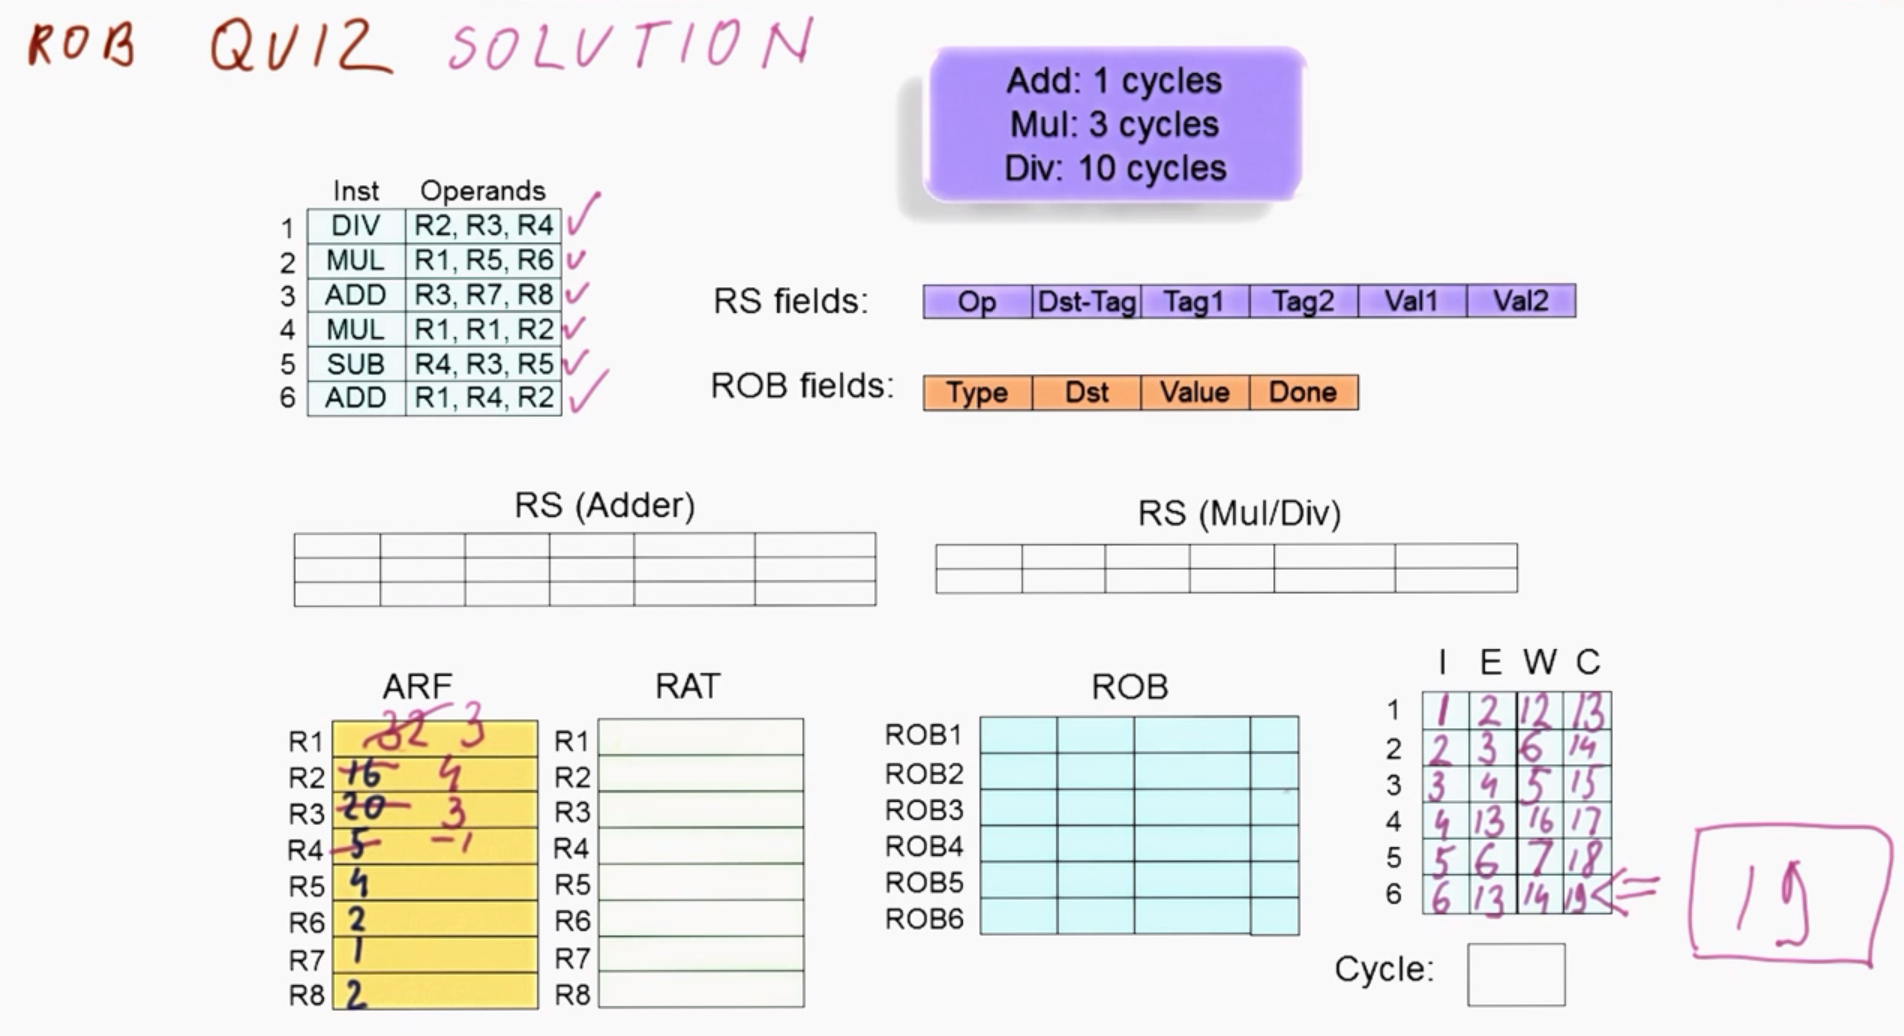 ROB QUIZ SOLUTION
Add: 1 cycles
Mul: 3 cycles
Div: 10 cycles
Inst Operands
1 DIV R2, R3, R4 ✓
2 MUL R1, R5, R6 ✓
3 ADD R3, R7, R8 ✓
4 MUL R1, R1, R2 ✓
5 SUB R4, R3, R5 ✓
6 ADD R1, R4, R2 ✓
RS fields: Op Dst-Tag Tag1 Tag2 Val1 Val2
ROB fields: Type Dst Value Done
RS (Adder)
RS (Mul/Div)
ARF
R1 32 3
R2 16 4
R3 20 3
R4 5 -1
R5 4
R6 2
R7 1
R8 2
RAT
R1
R2
R3
R4
R5
R6
R7
R8
ROB
ROB1
ROB2
ROB3
ROB4
ROB5
ROB6
I E W C
1 1 2 12 13
2 2 3 6 14
3 3 4 5 15
4 4 13 16 17
5 5 6 7 18
6 6 13 14 19
19
Cycle: